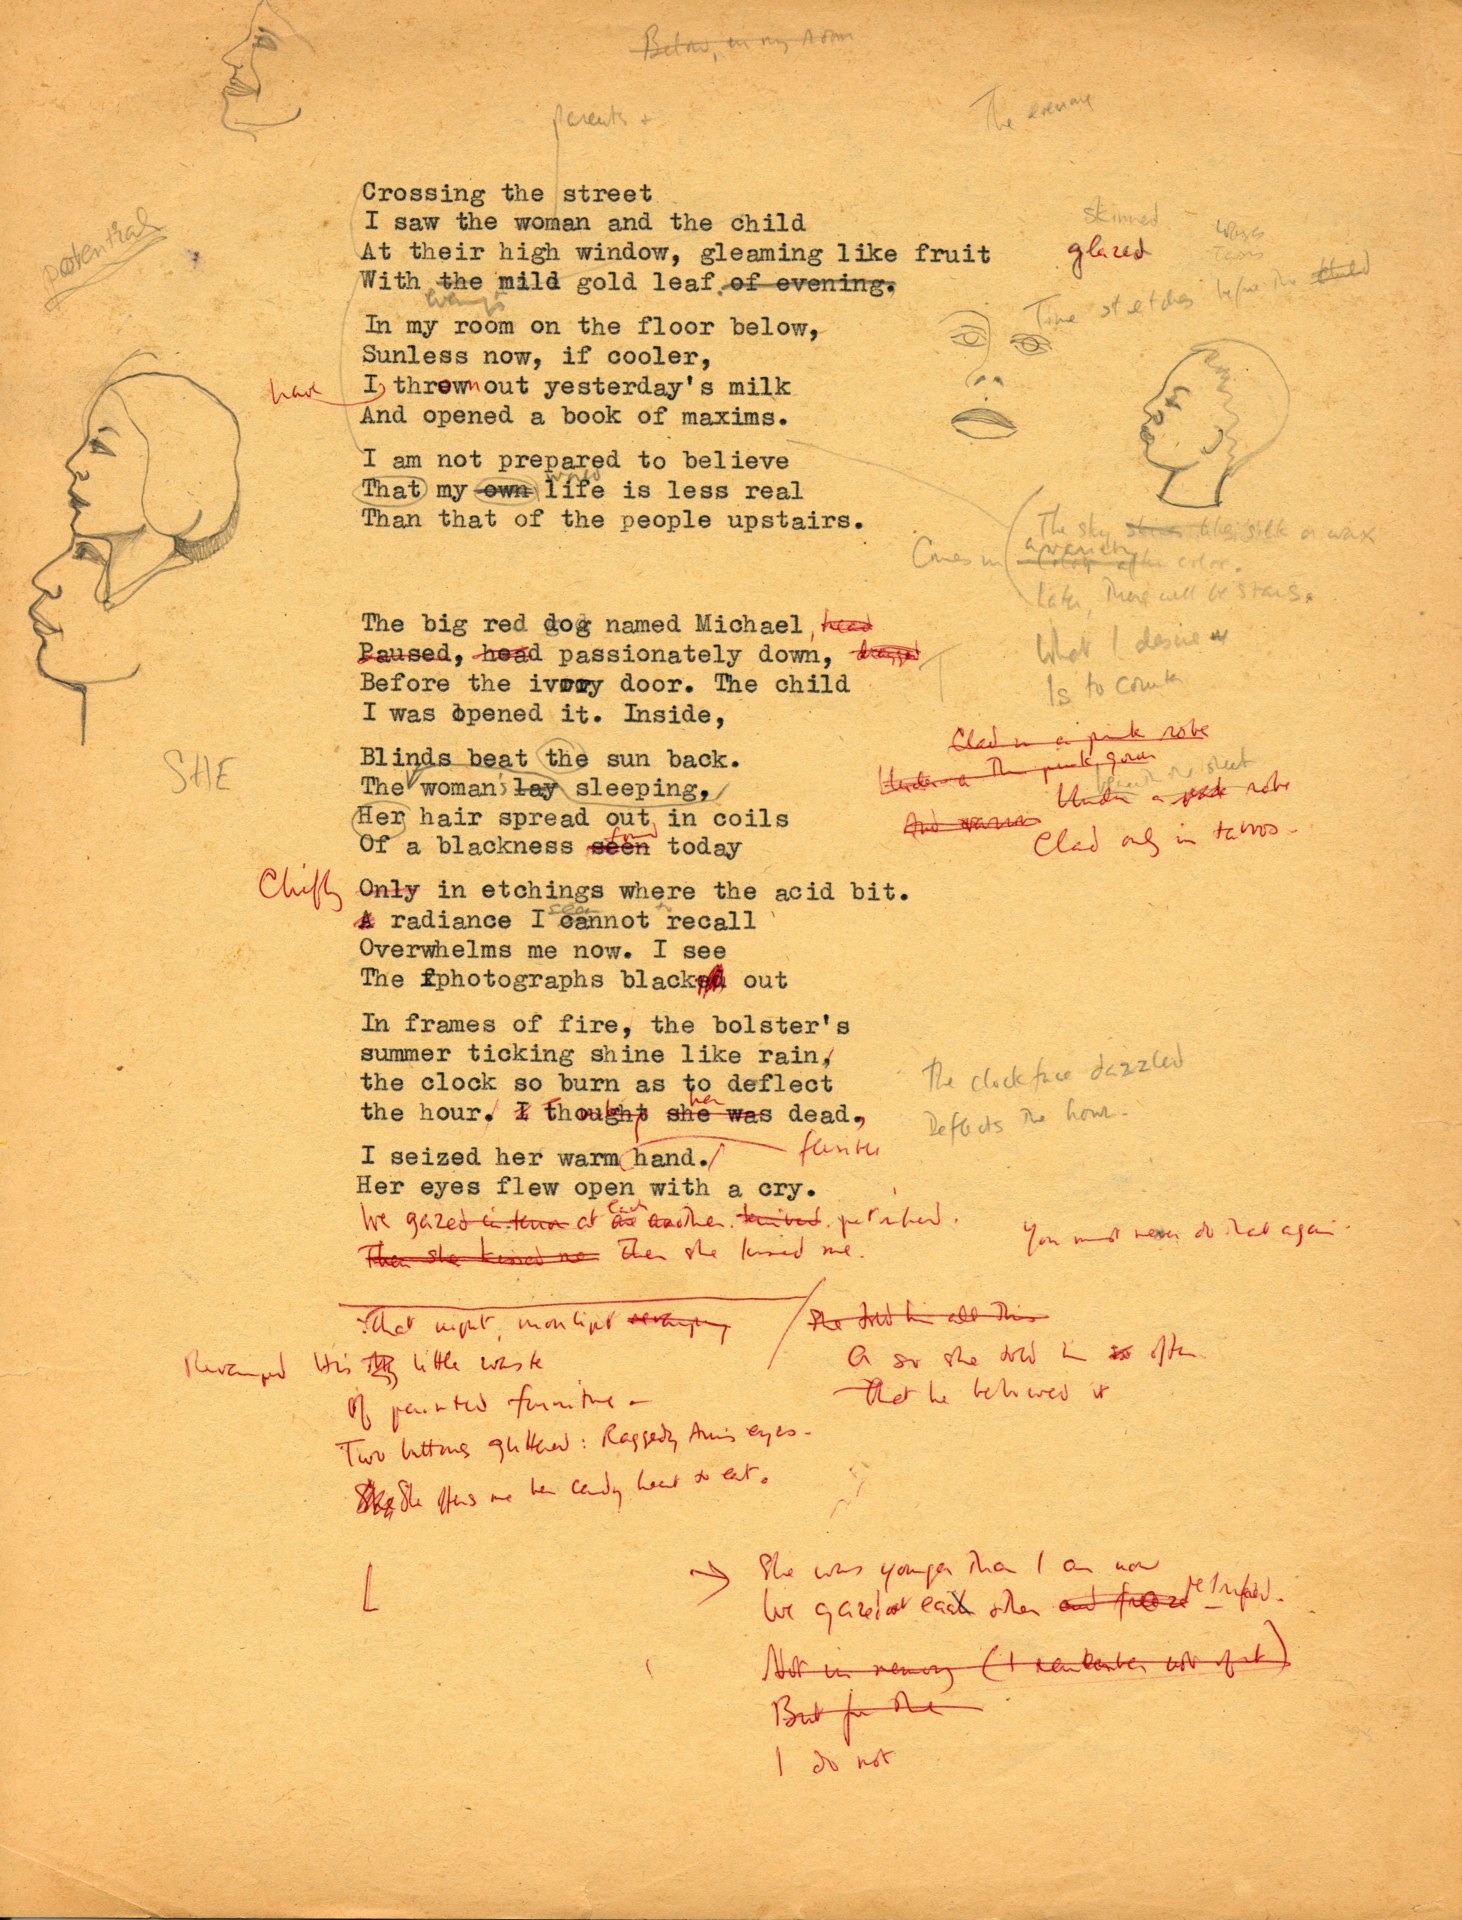 Below, in my room
parents +
The evening
potential
Crossing the street
I saw the woman and the child
At their high window, gleaming like fruit
With the mild gold leaf of evening.
evening's
skinned
glazed
Time stretches before the
In my room on the floor below,
Sunless now, if cooler,
have
I thrown out yesterday's milk
And opened a book of maxims.
I am not prepared to believe
That my own life is less real
Than that of the people upstairs.
The sky silk or wax
Comes in
color.
Later, there will be stars.
What I desire
Is to
The big red dog named Michael, head
Paused, head passionately down, dragged
Before the ivory door. The child
I was opened it. Inside,
SHE
Blinds beat the sun back.
The woman's lay sleeping,
Her hair spread out in coils
Of a blackness seen today
found
Clad in a pink robe
Under a The pink gown
beneath the sheet
Under a robe
Clad only in
Chiefly
Only in etchings where the acid bit.
A radiance I cannot recall
Overwhelms me now. I see
The photographs blacked out
In frames of fire, the bolster's
summer ticking shine like rain,
the clock so burn as to deflect
the hour. I thought she was dead,
her
The clockface dazzled
Deflects the hour.
I seized her warm hand.
Her eyes flew open with a cry.
We gazed in terror at each another petrified.
Then she kissed me Then she kissed me.
You must never do that again.
That night, moonlight revamping
Revamped his little waste
Of painted furniture
Two buttons glittered: Raggedy Ann's eyes.
She offers me her candy heart to eat.
She told him all this
so she told him so often
That he believed it
She was younger than I am now
We gazed at each other and froze petrified.
Not in memory (I remember not of it)
But for the
I do not